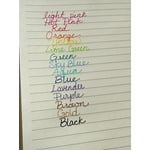 light pink
Hot Pink
Red
Orange
Yellow
Lime Green
Green
Sky Blue
Aqua
Blue
Lavender
Purple
Brown
Gold
Black